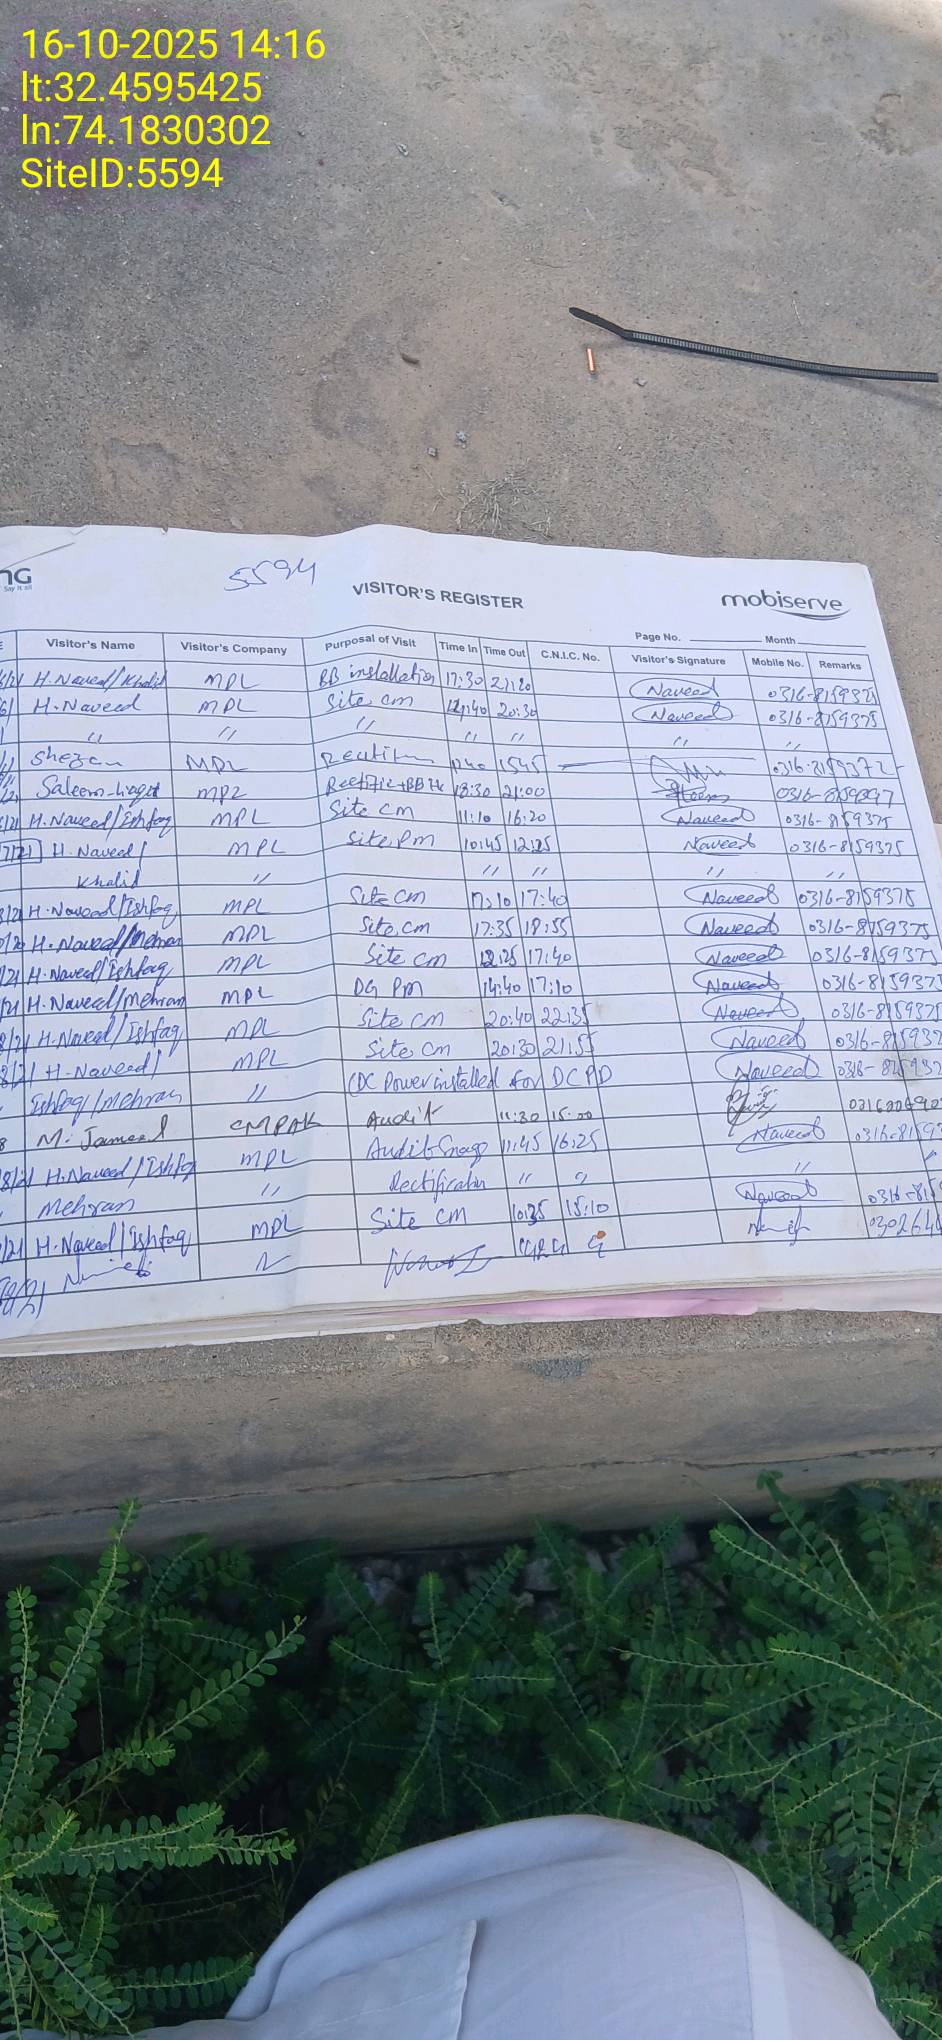 16-10-2025 14:16
lt:32.4595425
ln:74.1830302
SiteID:5594
NG
Say it all
5594
VISITOR'S REGISTER
mobiserve
Page No. Month
Visitor's Name Visitor's Company Purposal of Visit Time In Time Out C.N.I.C. No. Visitor's Signature Mobile No. Remarks
H.Naveed/Khalid MPL BB installation 17:30 21:20 Naveed 0316-8159375
H.Naveed MPL Site cm 20:30 Naveed 0316-8159375
" " " " " " "
MPL 1545
MPL 18:30 21:00
H.Naveed/Ishfaq MPL Site cm 11:10 16:20 Naveed 0316-8159375
H.Naveed/ MPL Site pm 10:45 12:25 Naveed 0316-8159375
Khalid " " " " "
H.Naveed/Ishfaq MPL Site cm 17:40 Naveed 0316-8159375
H.Naveed/Mehran MPL Site cm 17:35 18:55 Naveed 0316-8159375
H.Naveed/Ishfaq MPL Site cm 12:25 17:40 Naveed 0316-8159375
H.Naveed/Mehran MPL DG Pm 14:40 17:10 Naveed 0316-8159375
H.Naveed/Ishfaq MPL Site cm 20:40 22:35 Naveed 0316-815937
H.Naveed/ MPL Site cm 20:30 21:55 Naveed 0316-815937
Ishfaq/Mehran " (DC Power installed for DCPD
M. Jameel CMPAK Audit 11:30 15:00
H.Naveed/Ishfaq MPL Audit Snags 11:45 16:25 Naveed
Mehran " Rectification " " "
H.Naveed/Ishfaq MPL Site cm 10:35 15:10 Naveed